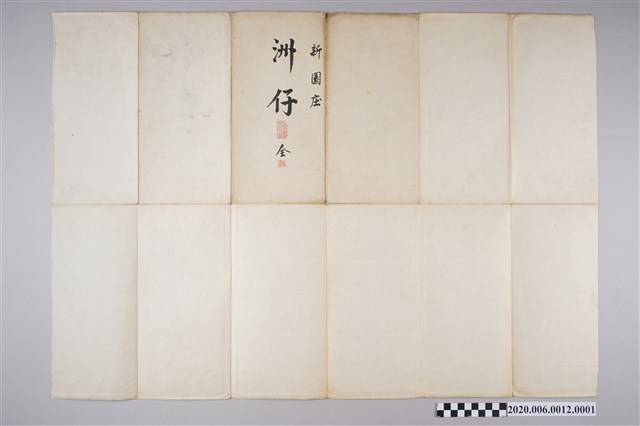 新園庄
洲仔
全
2020.006.0012.0001